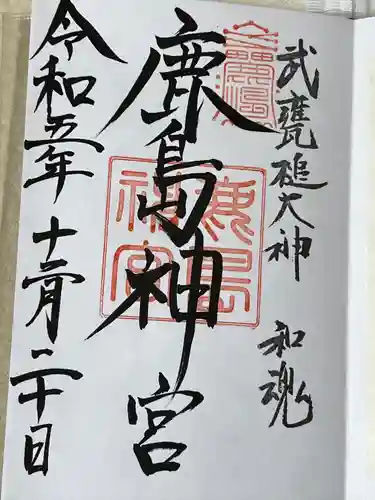 武甕槌大神 和魂
鹿島神宮
鹿島
神宮
令和五年十二月二十日